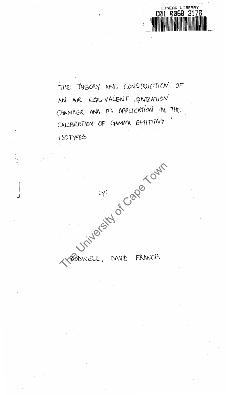 THESIS LIBRARY
001 0068 3176
THE THEORY AND CONSTRUCTION OF
AN AIR EQUIVALENT IONIZATION
CHAMBER AND ITS APPLICATION IN THE
CALIBRATION OF GAMMA EMITTING
ISOTOPES
BY
DAVID FRANCIS
The University of Cape Town